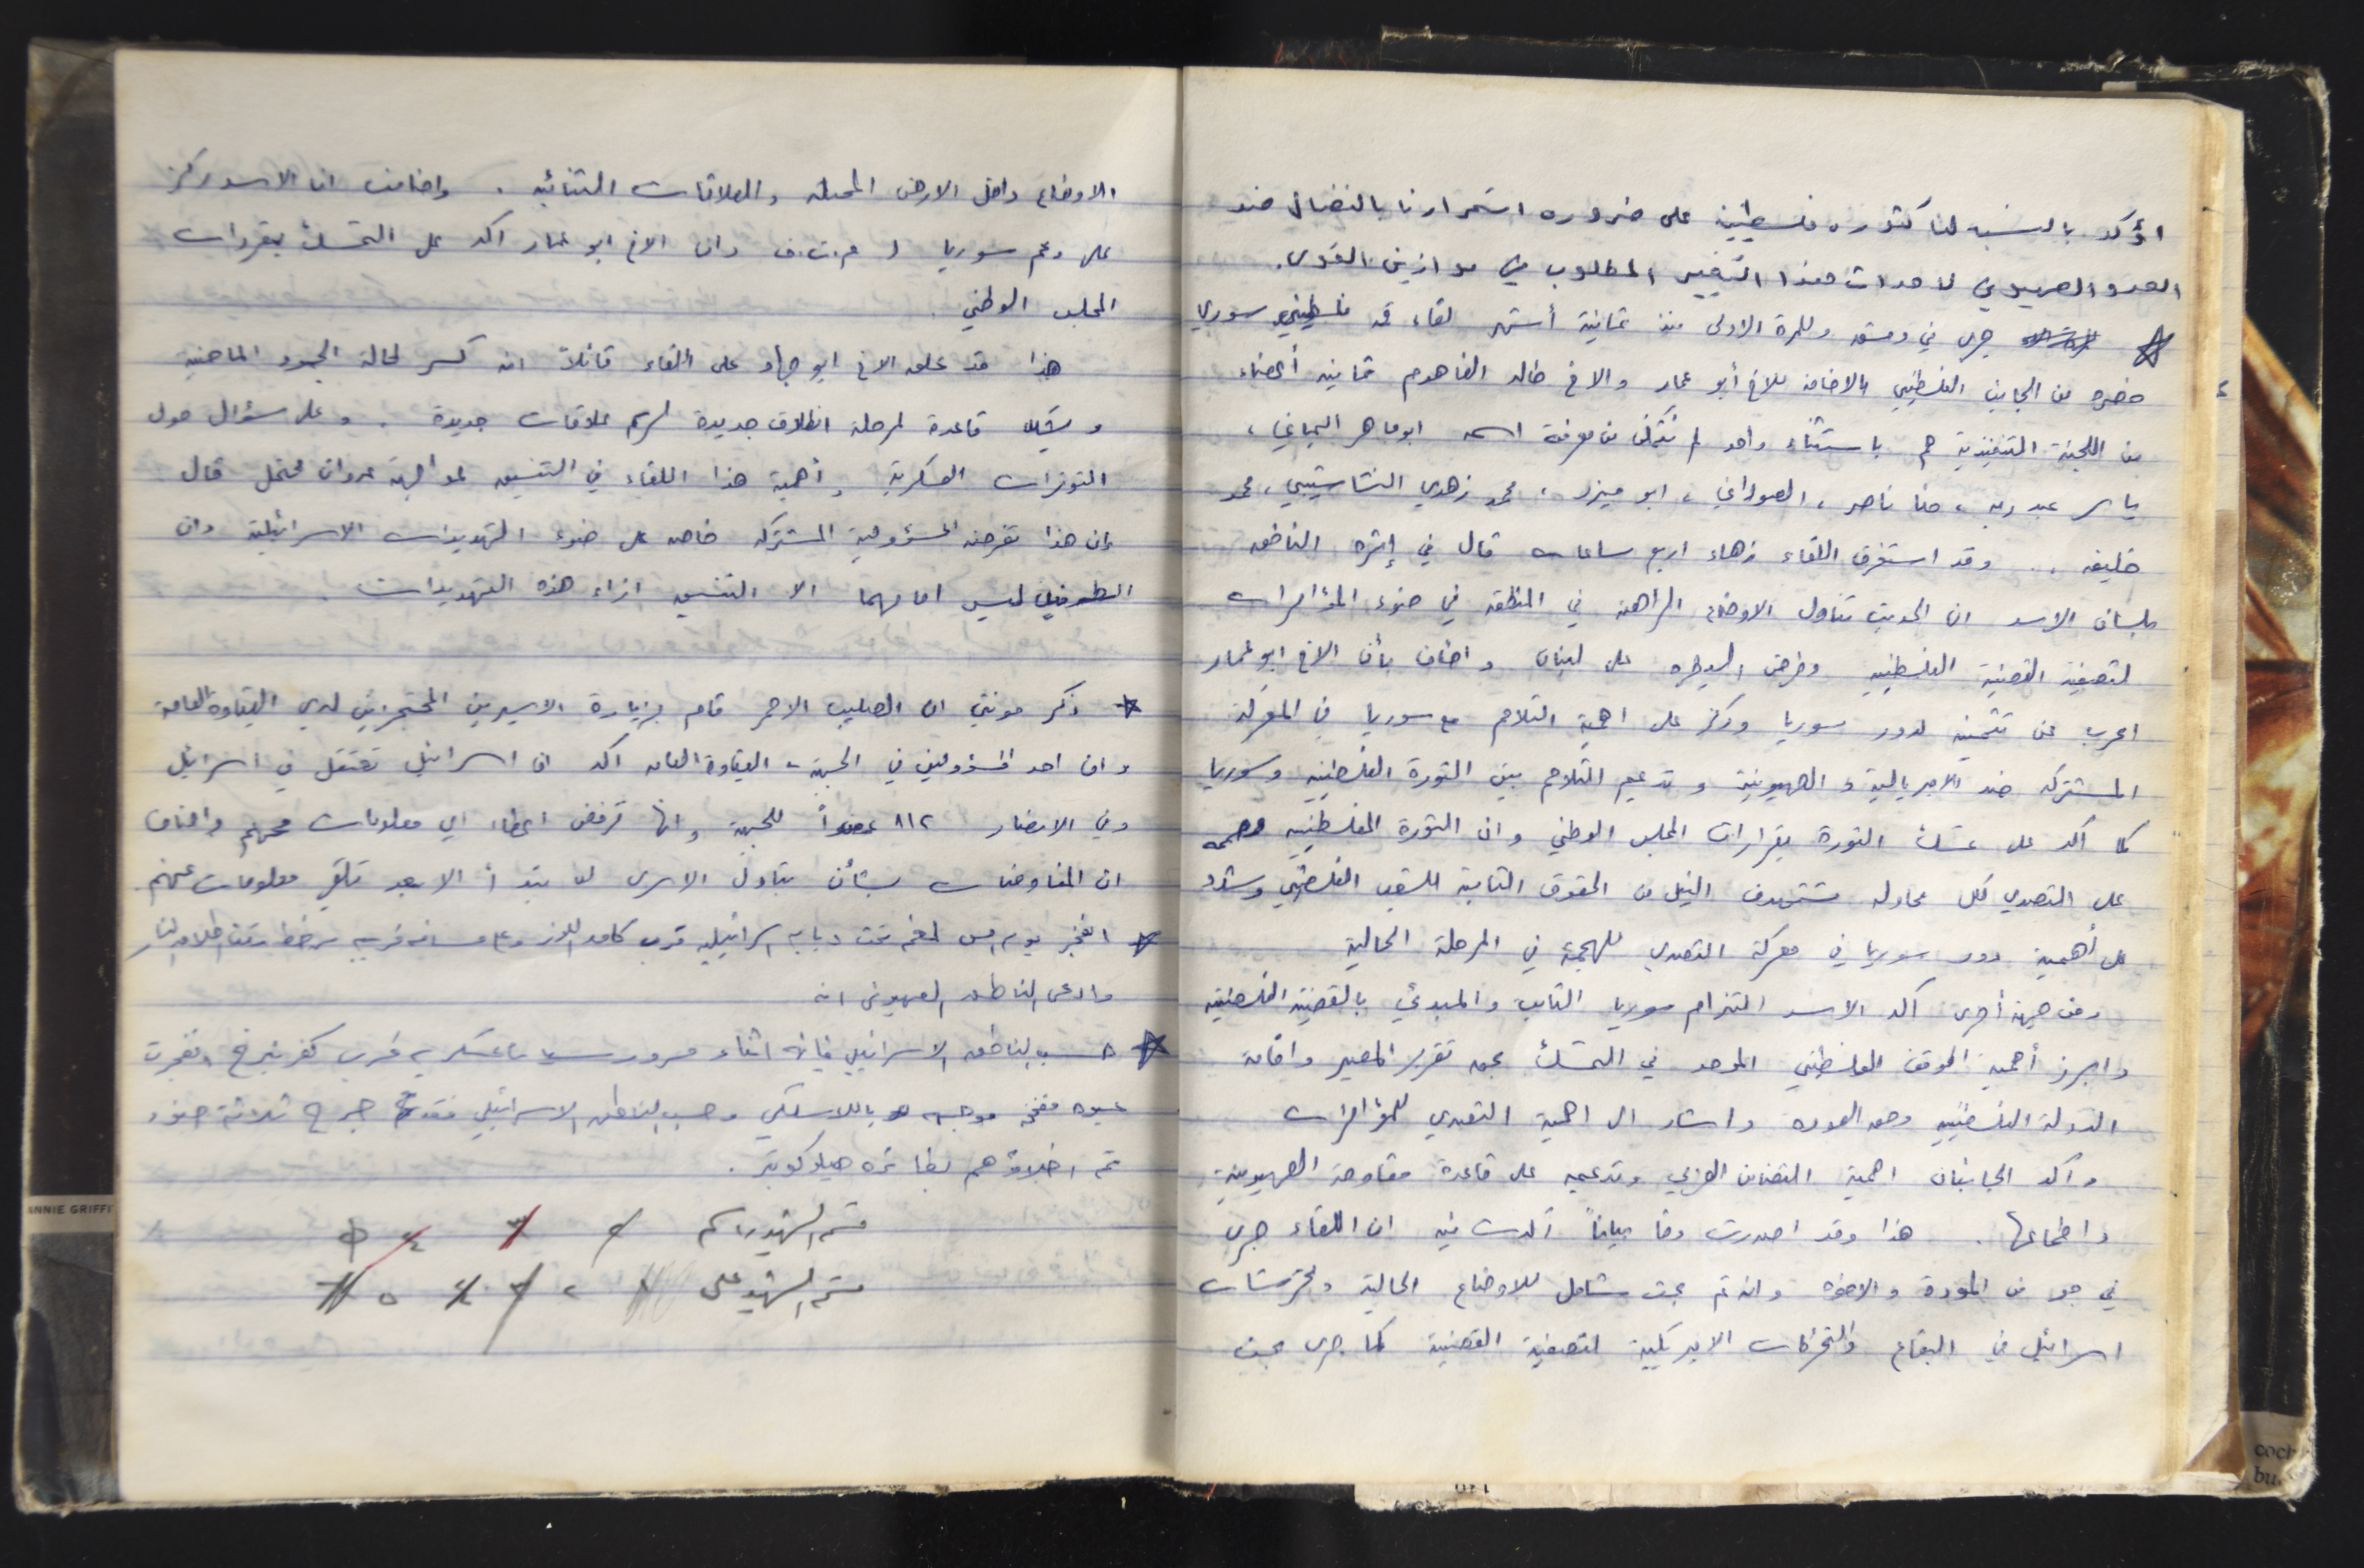 اؤكد بالنسبه لنا كثوره فلسطينية على ضروره استمرارنا بالنضال ضد
العدو الصهيوني لاحداث هذا التغيير المطلوب في موازين القوى.
جرى في دمشق وللمرة الاولى منذ ثمانية أشهر لقاء قمة فلسطيني سوري
حضره من الجانب الفلسطيني بالاضافه للاخ أبو عمار والاخ خالد الفاهوم ثمانيه أعضاء
من اللجنة التنفيذية هم باستثناء واحد لم نتمكن من معرفة اسمه ابو ماهر اليماني،
ياسر عبد ربه، حنا ناصر، الصوراني، ابو ميزر، محمد زهدي النشاشيبي، محمد
خليفه .. وقد استغرق اللقاء زهاء اربع ساعات قال في إثره الناطق
بلسان الاسد ان الحديث تناول الاوضاع الراهنة في المنطقه في ضوء المؤامرات
لتصفية القضية الفلسطينيه وفرض السيطره على لبنان واضاف بأن الاخ ابو عمار
اعرب عن تثمينه لدور سوريا وركز على اهمية التلاحم مع سوريا في المعركة
المشتركه ضد الامبريالية والصهيونية وتدعيم التلاحم بين الثورة الفلسطينيه وسوريا
كما اكد على تمسك الثورة بقرارات المجلس الوطني وان الثورة الفلسطينيه مصممه
على التصدي لكل محاوله تستهدف النيل من الحقوق الثابتة للشعب الفلسطيني وشدد
على أهمية دور سوريا في معركة التصدي للهجمة في المرحلة الحالية
ومن جهة أخرى اكد الاسد التزام سوريا الثابت والمبدئي بالقضية الفلسطينيه
وابرز أهمية الموقف الفلسطيني الموحد في التمسك بحق تقرير المصير واقامة
الدولة الفلسطينيه وحق العوده واشار الى اهمية التصدي للمؤامرات
واكد الجانبان اهمية التضامن العربي وتدعيمه على قاعدة مقاومة الصهيونية
واطماعها. هذا وقد اصدرت وفا بياناً أكدت فيه ان اللقاء جرى
في جو من المودة والاخوه وانه تم بحث شامل للاوضاع الحالية وتحرشات
اسرائيل في البقاع والتحركات الامريكية لتصفية القضية كما جرى بحث
الاوضاع داخل الارض المحتله والعلاقات الثنائيه. واضافت ان الاسد ركز
على دعم سوريا ل م.ت.ف وان الاخ ابو عمار اكد على التمسك بقرارات
المجلس الوطني.
هذا وقد علق الاخ ابو جهاد على اللقاء قائلاً انه كسر لحالة الجمود الماضية
وشكل قاعدة لمرحلة انطلاق جديدة لرسم علاقات جديدة. وعلى سؤال حول
التوترات العسكرية وأهمية هذا اللقاء في التنسيق لمواجهة عدوان محتمل قال
بإن هذا تفرضه المسؤولية المشتركه خاصه على ضوء التهديدات الاسرائيلية وان
الطرفين ليس امامهما الا التنسيق ازاء هذه التهديدات.
ذكر مونتي ان الصليب الاحمر قام بزيارة الاسيرين المحتجزين لدى القيادة العامة
وان احد المسؤولين في الجبهة - القيادة العامه اكد ان اسرائيل تعتقل في اسرائيل
وفي الانصار ٨١٢ عضواً للجبهة وانها ترفض اعطاء اي معلومات عنهم واضاف
ان المفاوضات بشأن تبادل الاسرى لن تبدأ الا بعد تلقي معلومات عنهم.
انفجر يوم امس لغم تحت دبابه اسرائيليه قرب كامد اللوز وعلى مسافه قريبه من خط وقف اطلاق النار
وادعى الناطق الصهيوني انه
حسب الناطق الاسرائيلي فانه اثناء مرور سيارة عسكريه قرب كفر تبنيخ انفجرت
عبوه مفخخه موجهه باللاسلكي وحسب الناطق الاسرائيلي فقد جرح ثلاثة جنود
تم اخلاؤهم بطائره هيلوكوبتر.
قسم الشهيد راسم ٢ ٣ ٤ ٥
قسم الشهيد علي ٢ ٣ ٤ ٥